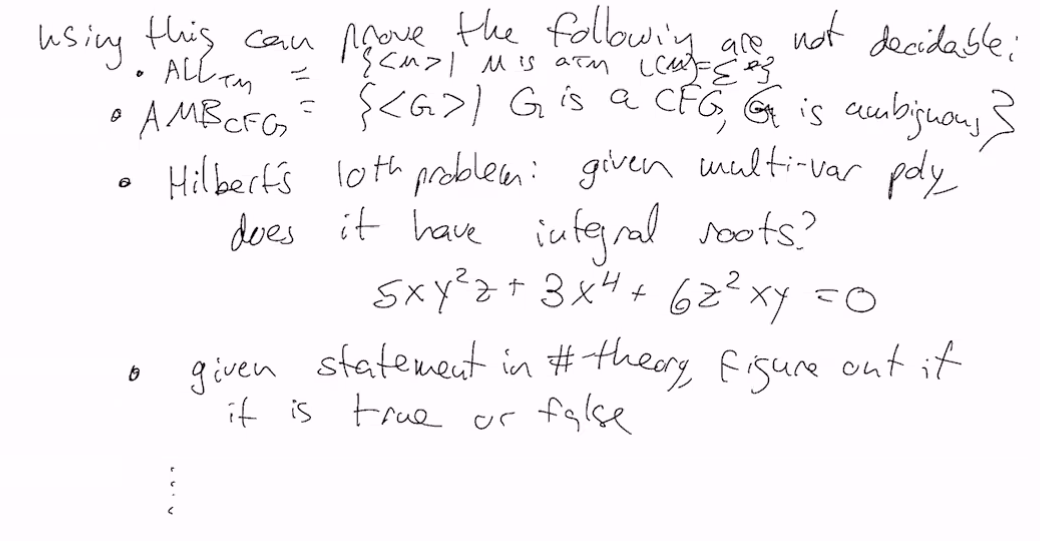 using this can prove the following are not decidable:
• ALL_TM = {<M> | M is a TM L(M)=Σ*}
• AMB_CFG = {<G> | G is a CFG, G is ambiguous}
• Hilbert's 10th problem: given multi-var poly
does it have integral roots?
5xy²z + 3x⁴ + 6z²xy = 0
• given statement in # theory, figure out if
it is true or false